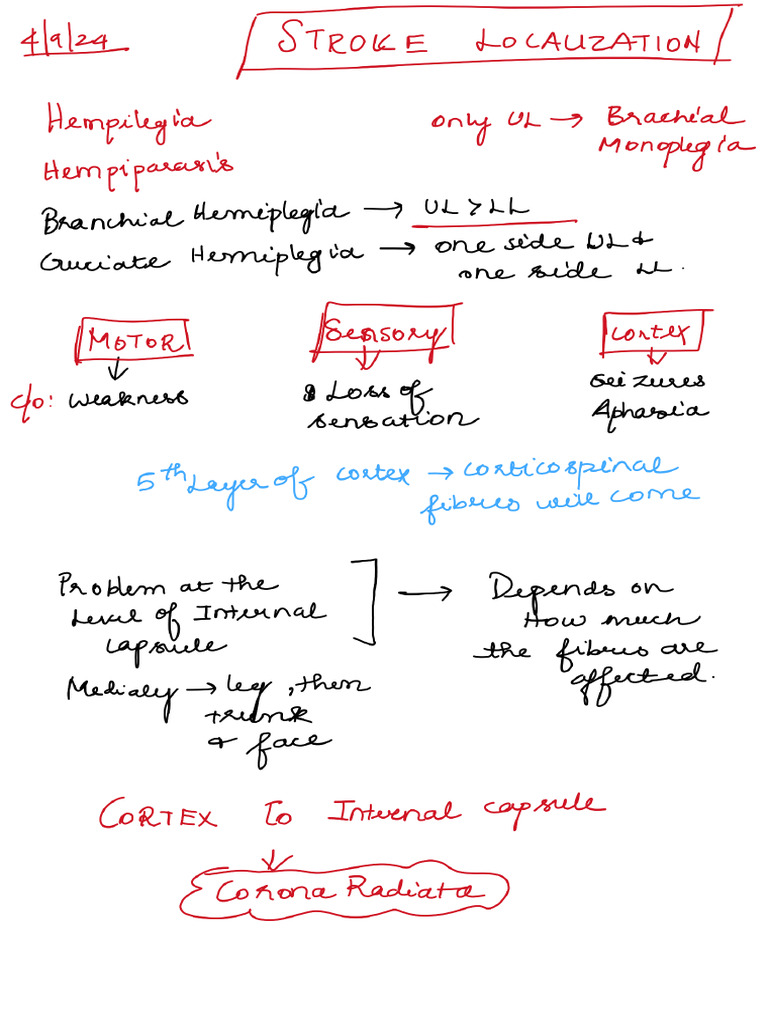 4/9/24
STROKE LOCALIZATION
Hempilegia
Hempiparasis
only UL → Brachial
Monoplegia
Branchial Hemiplegia → UL > LL
Cruciate Hemiplegia → one side UL &
one side LL.
MOTOR
Sensory
Cortex
c/o: weakness
Loss of
sensation
Seizures
Aphasia
5th Layer of cortex → corticospinal
fibres will come
Problem at the
Level of Internal
Capsule
→ Depends on
How much
the fibres are
affected.
Medialy → leg, then
trunk
& face
CORTEX To Internal capsule
Corona Radiata